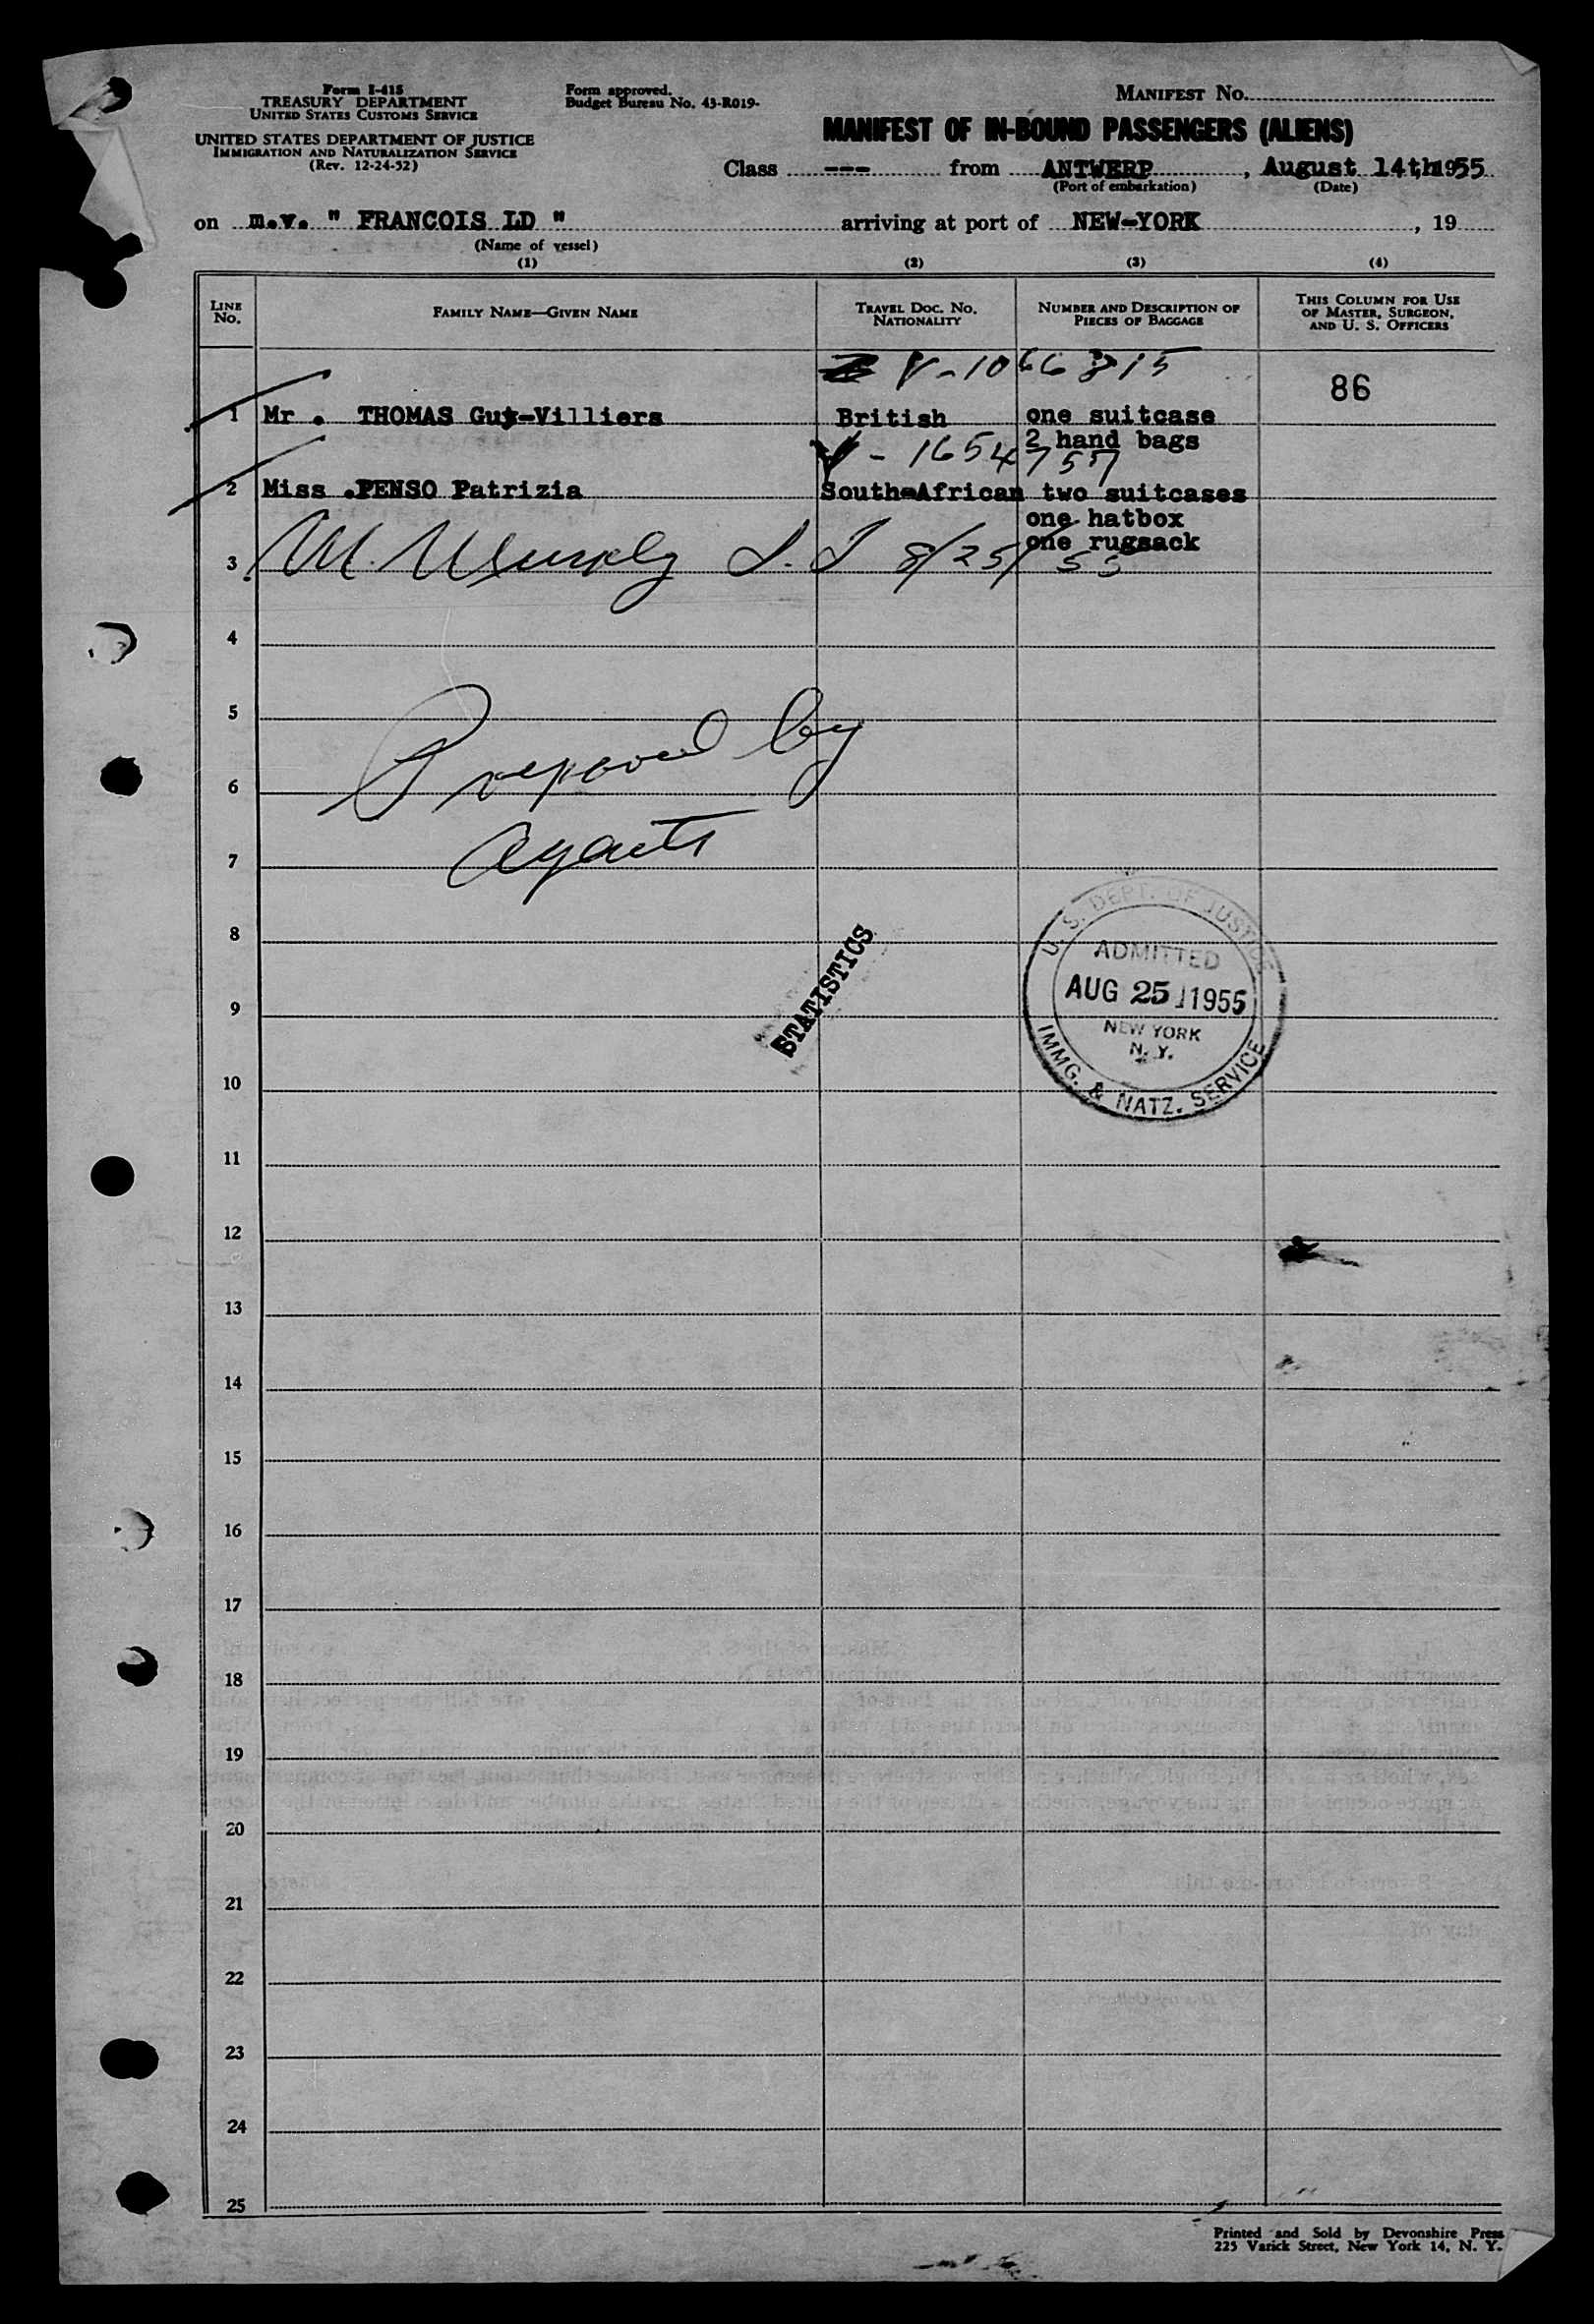 Form I-415
TREASURY DEPARTMENT
UNITED STATES CUSTOMS SERVICE
UNITED STATES DEPARTMENT OF JUSTICE
IMMIGRATION AND NATURALIZATION SERVICE
(Rev. 12-24-52)
Form approved.
Budget Bureau No. 43-R019-
MANIFEST NO.
MANIFEST OF IN-BOUND PASSENGERS (ALIENS)
Class --- from ANTWERP, August 14th 1955
(Port of embarkation) (Date)
on m.v. " FRANCOIS LD " arriving at port of NEW-YORK, 19
(Name of vessel)
(1) (2) (3) (4)
LINE NO. FAMILY NAME—GIVEN NAME TRAVEL DOC. NO. NATIONALITY NUMBER AND DESCRIPTION OF PIECES OF BAGGAGE THIS COLUMN FOR USE OF MASTER, SURGEON, AND U. S. OFFICERS
V-1066815
86
1 Mr . THOMAS Guy-Villiers British one suitcase
2 hand bags
V-1654757
2 Miss .PENSO Patrizia South-African two suitcases
one hatbox
one rugsack
3 8/25/55
4
5
Prepared by
6
agents
7
8
STATISTICS
U. S. DEPT. OF JUSTICE
ADMITTED
AUG 25 1955
NEW YORK
N. Y.
IMMG. & NATZ. SERVICE
9
10
11
12
13
14
15
16
17
18
19
20
21
22
23
24
25
Printed and Sold by Devonshire Press
225 Varick Street, New York 14, N. Y.